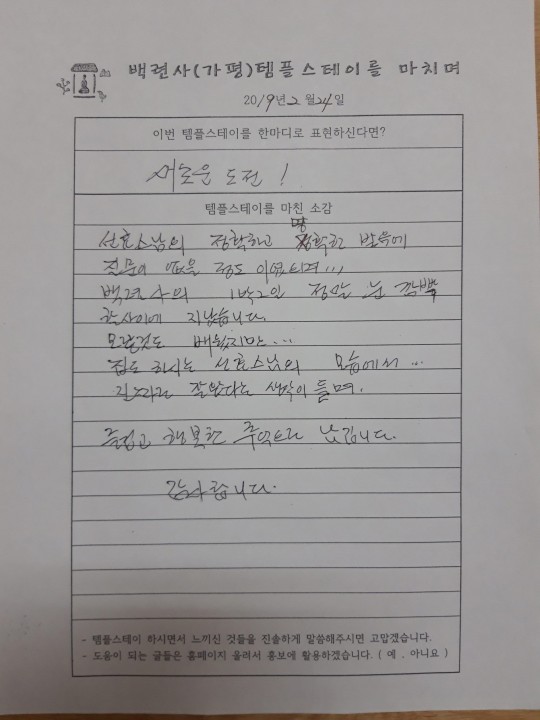 백련사(가평)템플스테이를 마치며
2019년 2월 24일
이번 템플스테이를 한마디로 표현하신다면?
새로운 도전!
템플스테이를 마친 소감
선효스님의 정확하고 명확한 발음에
질문이 없을 정도 이였으며...
백련사의 1박2일 정말 눈 깜빡
할사이에 지났습니다.
모를것도 배웠지만...
집도 하시는 선효스님의 모습에서...
잘왔다는 생각이 들며.
즐겁고 행복한 추억으로 남깁니다.
감사합니다.
- 템플스테이 하시면서 느끼신 것들을 진솔하게 말씀해주시면 고맙겠습니다.
- 도움이 되는 글들은 홈페이지 올려서 홍보에 활용하겠습니다. ( 예 , 아니요 )